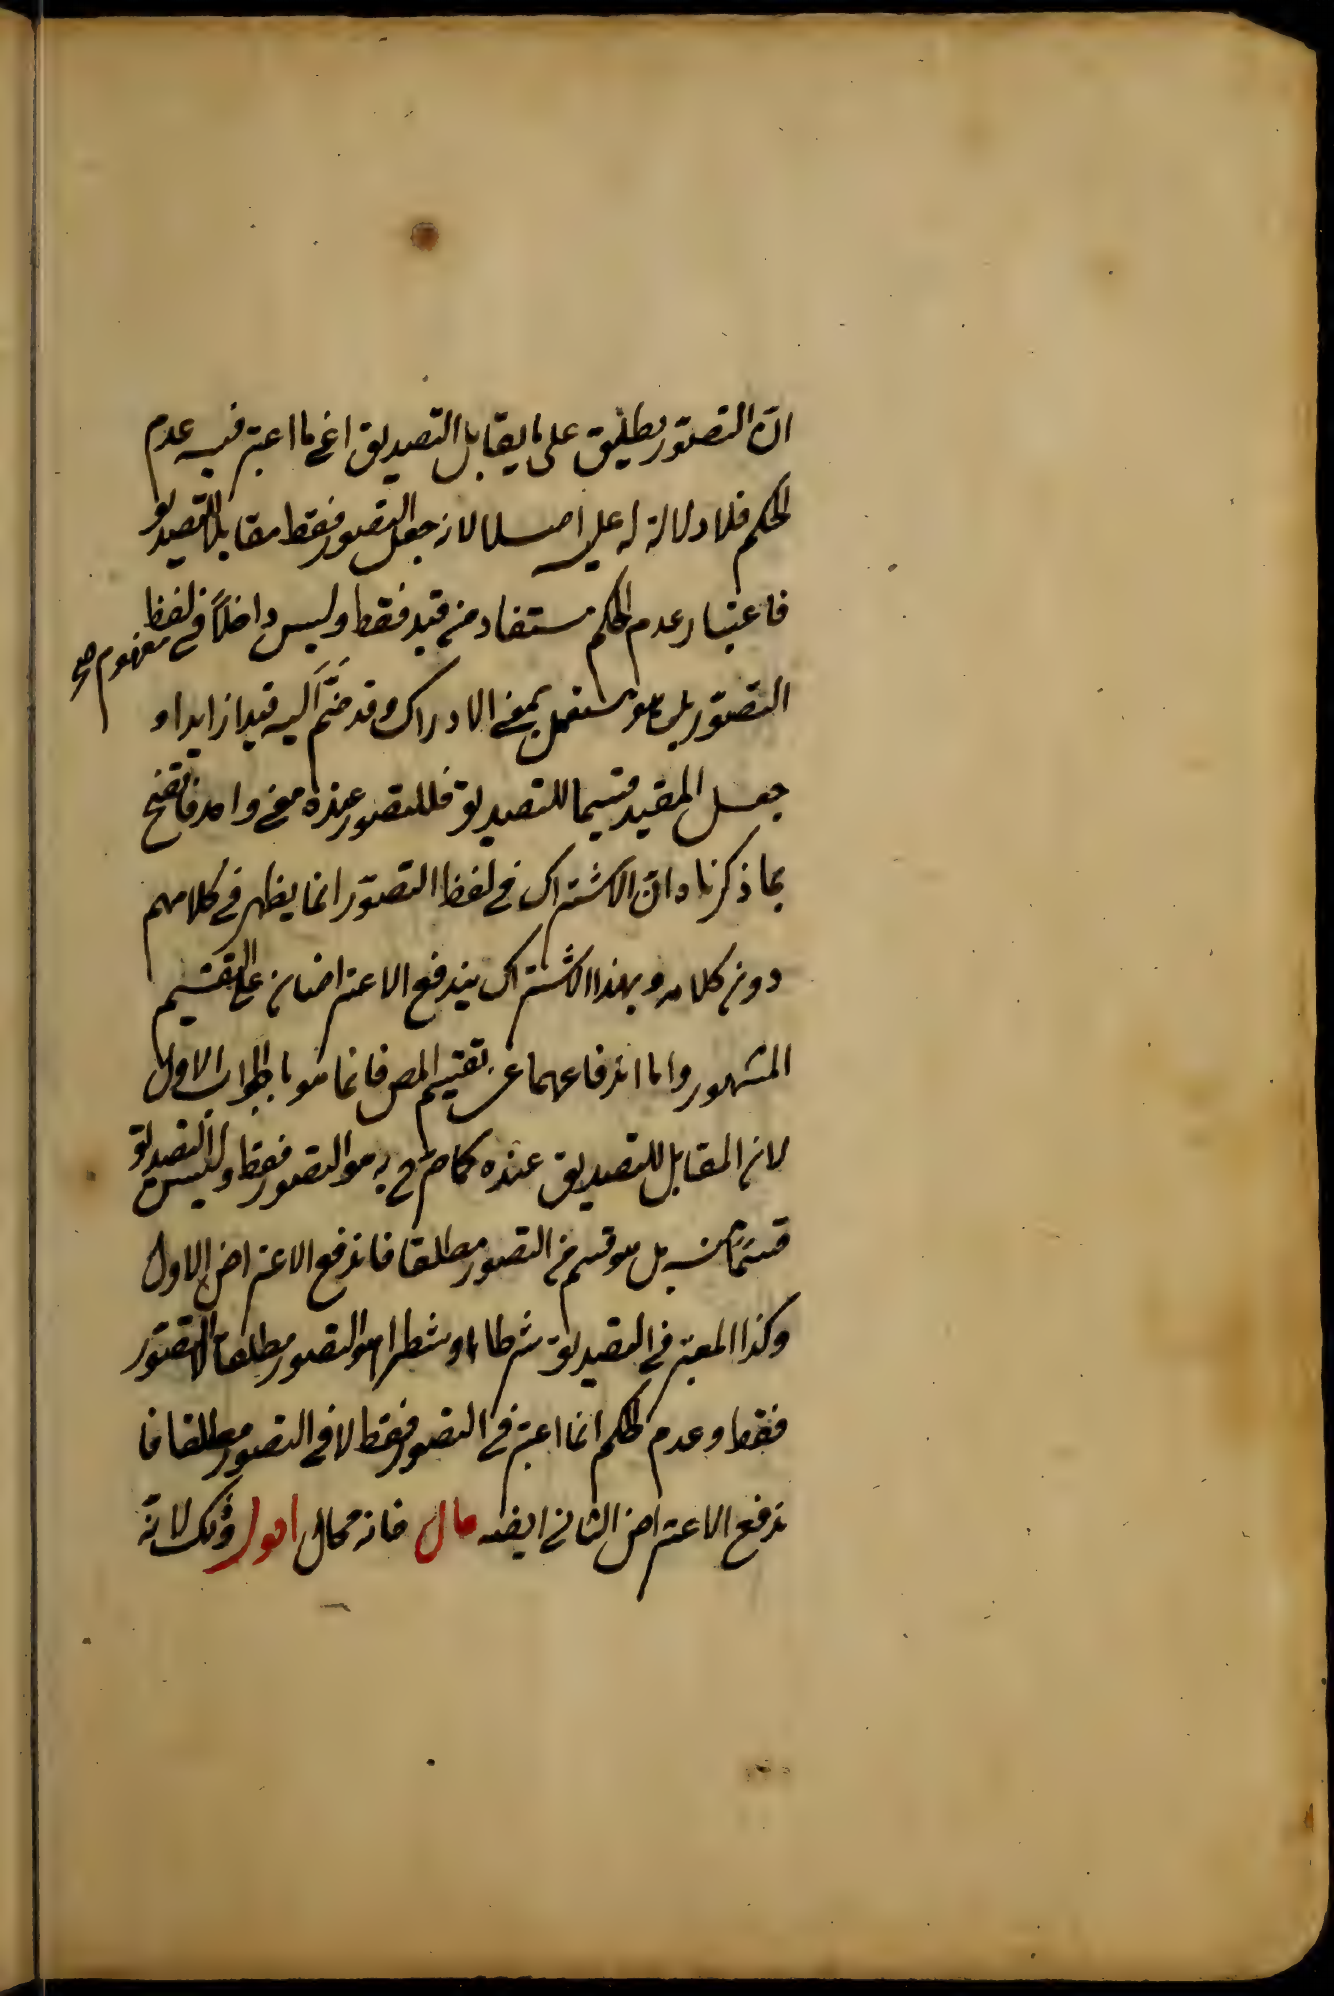 انّ التصوّر يطلق على ما يقابل التصديق اعنى ما اعتبر فيه عدم
الحكم فلا دلالة له عليه اصلا لانه جعل التصور فقط مقابلا للتصديق
فاعتبار عدم الحكم مستفاد من قيد فقط وليس داخلاً فى لفظ
مفهوم صح
التصوّر بل هو مستعمل بمعنى الادراك وقد ضَمَّ اليه قيدا زايدا و
جعل المقيد قسيما للتصديق فللتصور عنده معنى واحد فاتضح
بما ذكرنا ه انّ الاشتراك فى لفظ التصوّر انما يظهر فى كلامهم
دون كلامه وبهذا الاشتراك يندفع الاعتراضان على التقسيم
المشهور واما اندفاعهما عن تقسيم المص فانما هو بالجواب الاول
لان المقابل للتصديق عنده كما صرح به هو التصور فقط وليس التصديق
قسمًا منه بل هو قسم من التصور مطلقا فاندفع الاعتراض الاول
وكذا المعتبر فى التصديق شرطا او شطرا هو التصور مطلقا لا التصوّر
فقط وعدم الحكم انما اعتبر فى التصور فقط لا فى التصور مطلقا فا
ندفع الاعتراض الثانى ايضا قال فانه محال اقول وذلك لانّه